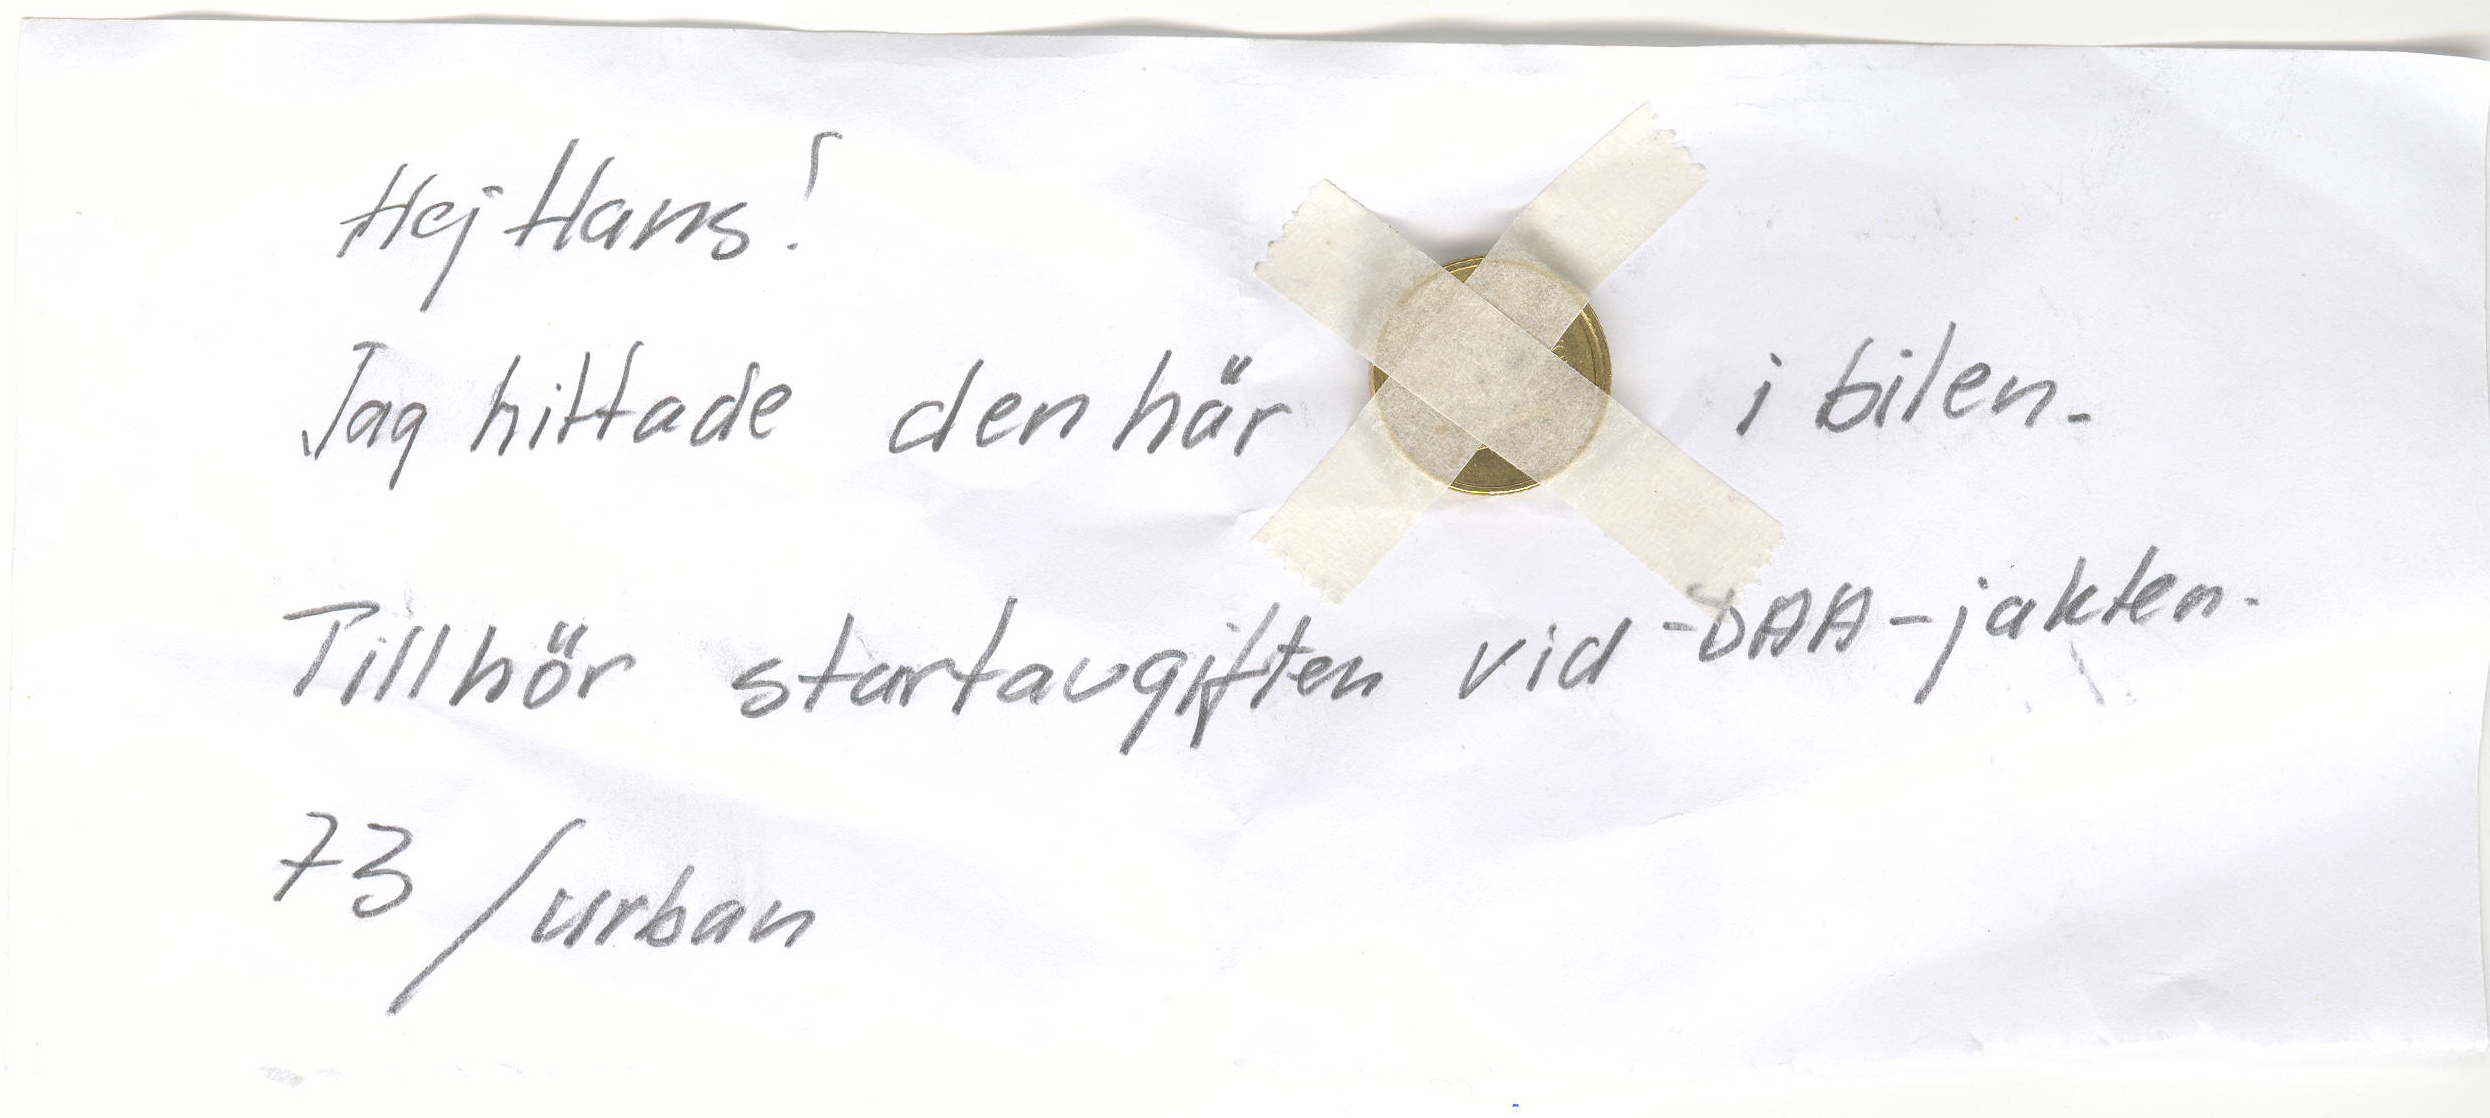 Hej Hans!
Jag hittade den här i bilen.
Tillhör startavgiften vid -DAA-jakten.
73 /urban